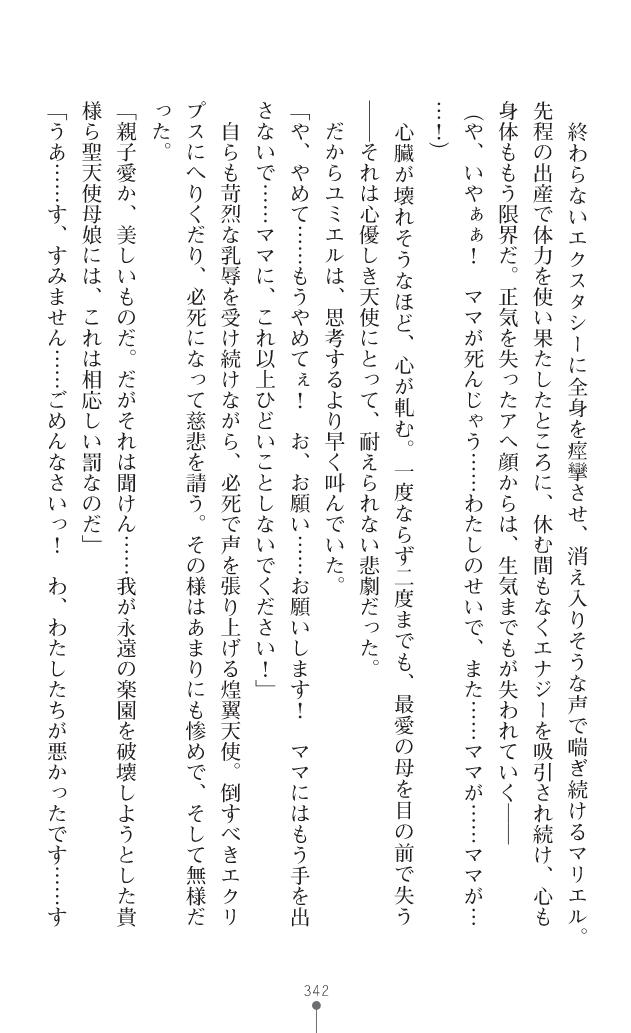 終わらないエクスタシーに全身を痙攣させ、消え入りそうな声で喘ぎ続けるマリエル。
先程の出産で体力を使い果たしたところに、休む間もなくエナジーを吸引され続け、心も
身体ももう限界だ。正気を失ったアヘ顔からは、生気までもが失われていく――
(や、いやぁぁ！　ママが死んじゃう……わたしのせいで、また……ママが……ママが…
…！)
心臓が壊れそうなほど、心が軋む。一度ならず二度までも、最愛の母を目の前で失う
――それは心優しき天使にとって、耐えられない悲劇だった。
だからユミエルは、思考するより早く叫んでいた。
「や、やめて……もうやめてぇ！　お、お願い……お願いします！　ママにはもう手を出
さないで……ママに、これ以上ひどいことしないでください！」
自らも苛烈な乳辱を受け続けながら、必死で声を張り上げる煌翼天使。倒すべきエクリ
プスにへりくだり、必死になって慈悲を請う。その様はあまりにも惨めで、そして無様だ
った。
「親子愛か、美しいものだ。だがそれは聞けん……我が永遠の楽園を破壊しようとした貴
様ら聖天使母娘には、これは相応しい罰なのだ」
「うあ……す、すみません……ごめんなさいっ！　わ、わたしたちが悪かったです……す
342